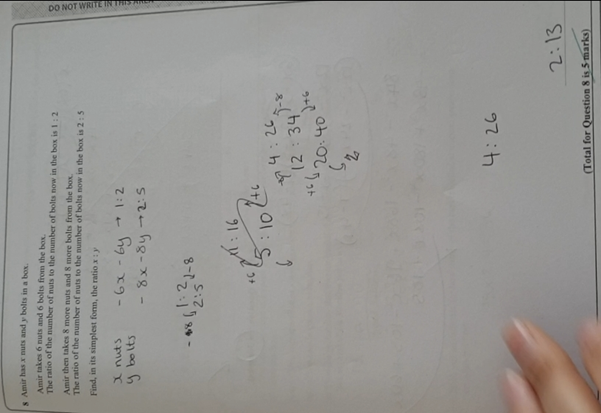 DO NOT WRITE IN THIS AREA
8 Amir has x nuts and y bolts in a box.
Amir takes 6 nuts and 6 bolts from the box.
The ratio of the number of nuts to the number of bolts now in the box is 1 : 2
Amir then takes 8 more nuts and 8 more bolts from the box.
The ratio of the number of nuts to the number of bolts now in the box is 2 : 5
Find, in its simplest form, the ratio x : y
x nuts - 6x - 6y → 1:2
y bolts - 8x - 8y → 2:5
1:2 -8
2:5
11 : 16
+6 5 : 10 +6
4 : 26 -8
12 : 34 +6
+6 20 : 40
2
4 : 26
2 : 13
(Total for Question 8 is 5 marks)